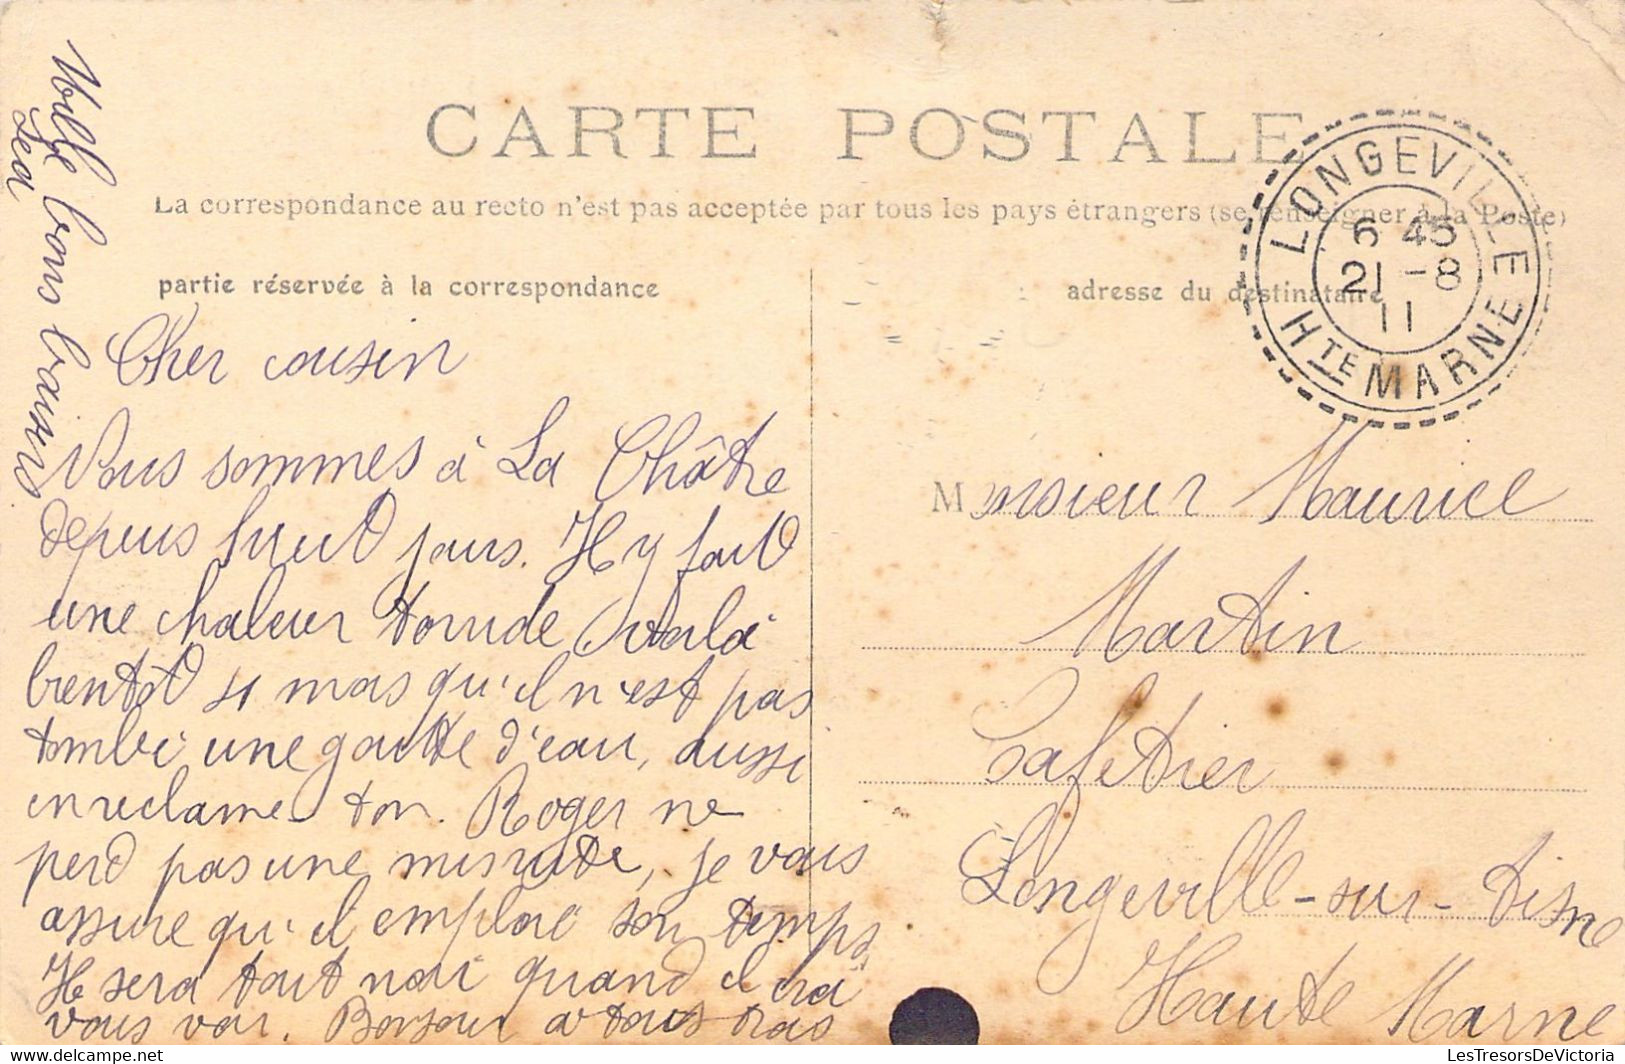 CARTE POSTALE
La correspondance au recto n'est pas acceptée par tous les pays étrangers (se renseigner à la Poste)
partie réservée à la correspondance
Cher cousin
Nous sommes à La Châtre
depuis huit jours. Il y fait
une chaleur torride voilà
bientôt 4 mois qu'il n'est pas
tombé une goutte d'eau, aussi
en reclame ton. Roger ne
perd pas une minute, je vous
assure qu'il emploie son temps
Il sera tout noir quand il ira
vous voir. Bonjour à tous trois
Mille bons baisers
Léa
adresse du destinataire
LONGEVILLE
6 45
21 -8
11
HTE MARNE
Monsieur Maurice
Martin
Cafetier
Longeville-sur-Aisne
Haute Marne
LesTresorsDeVictoria